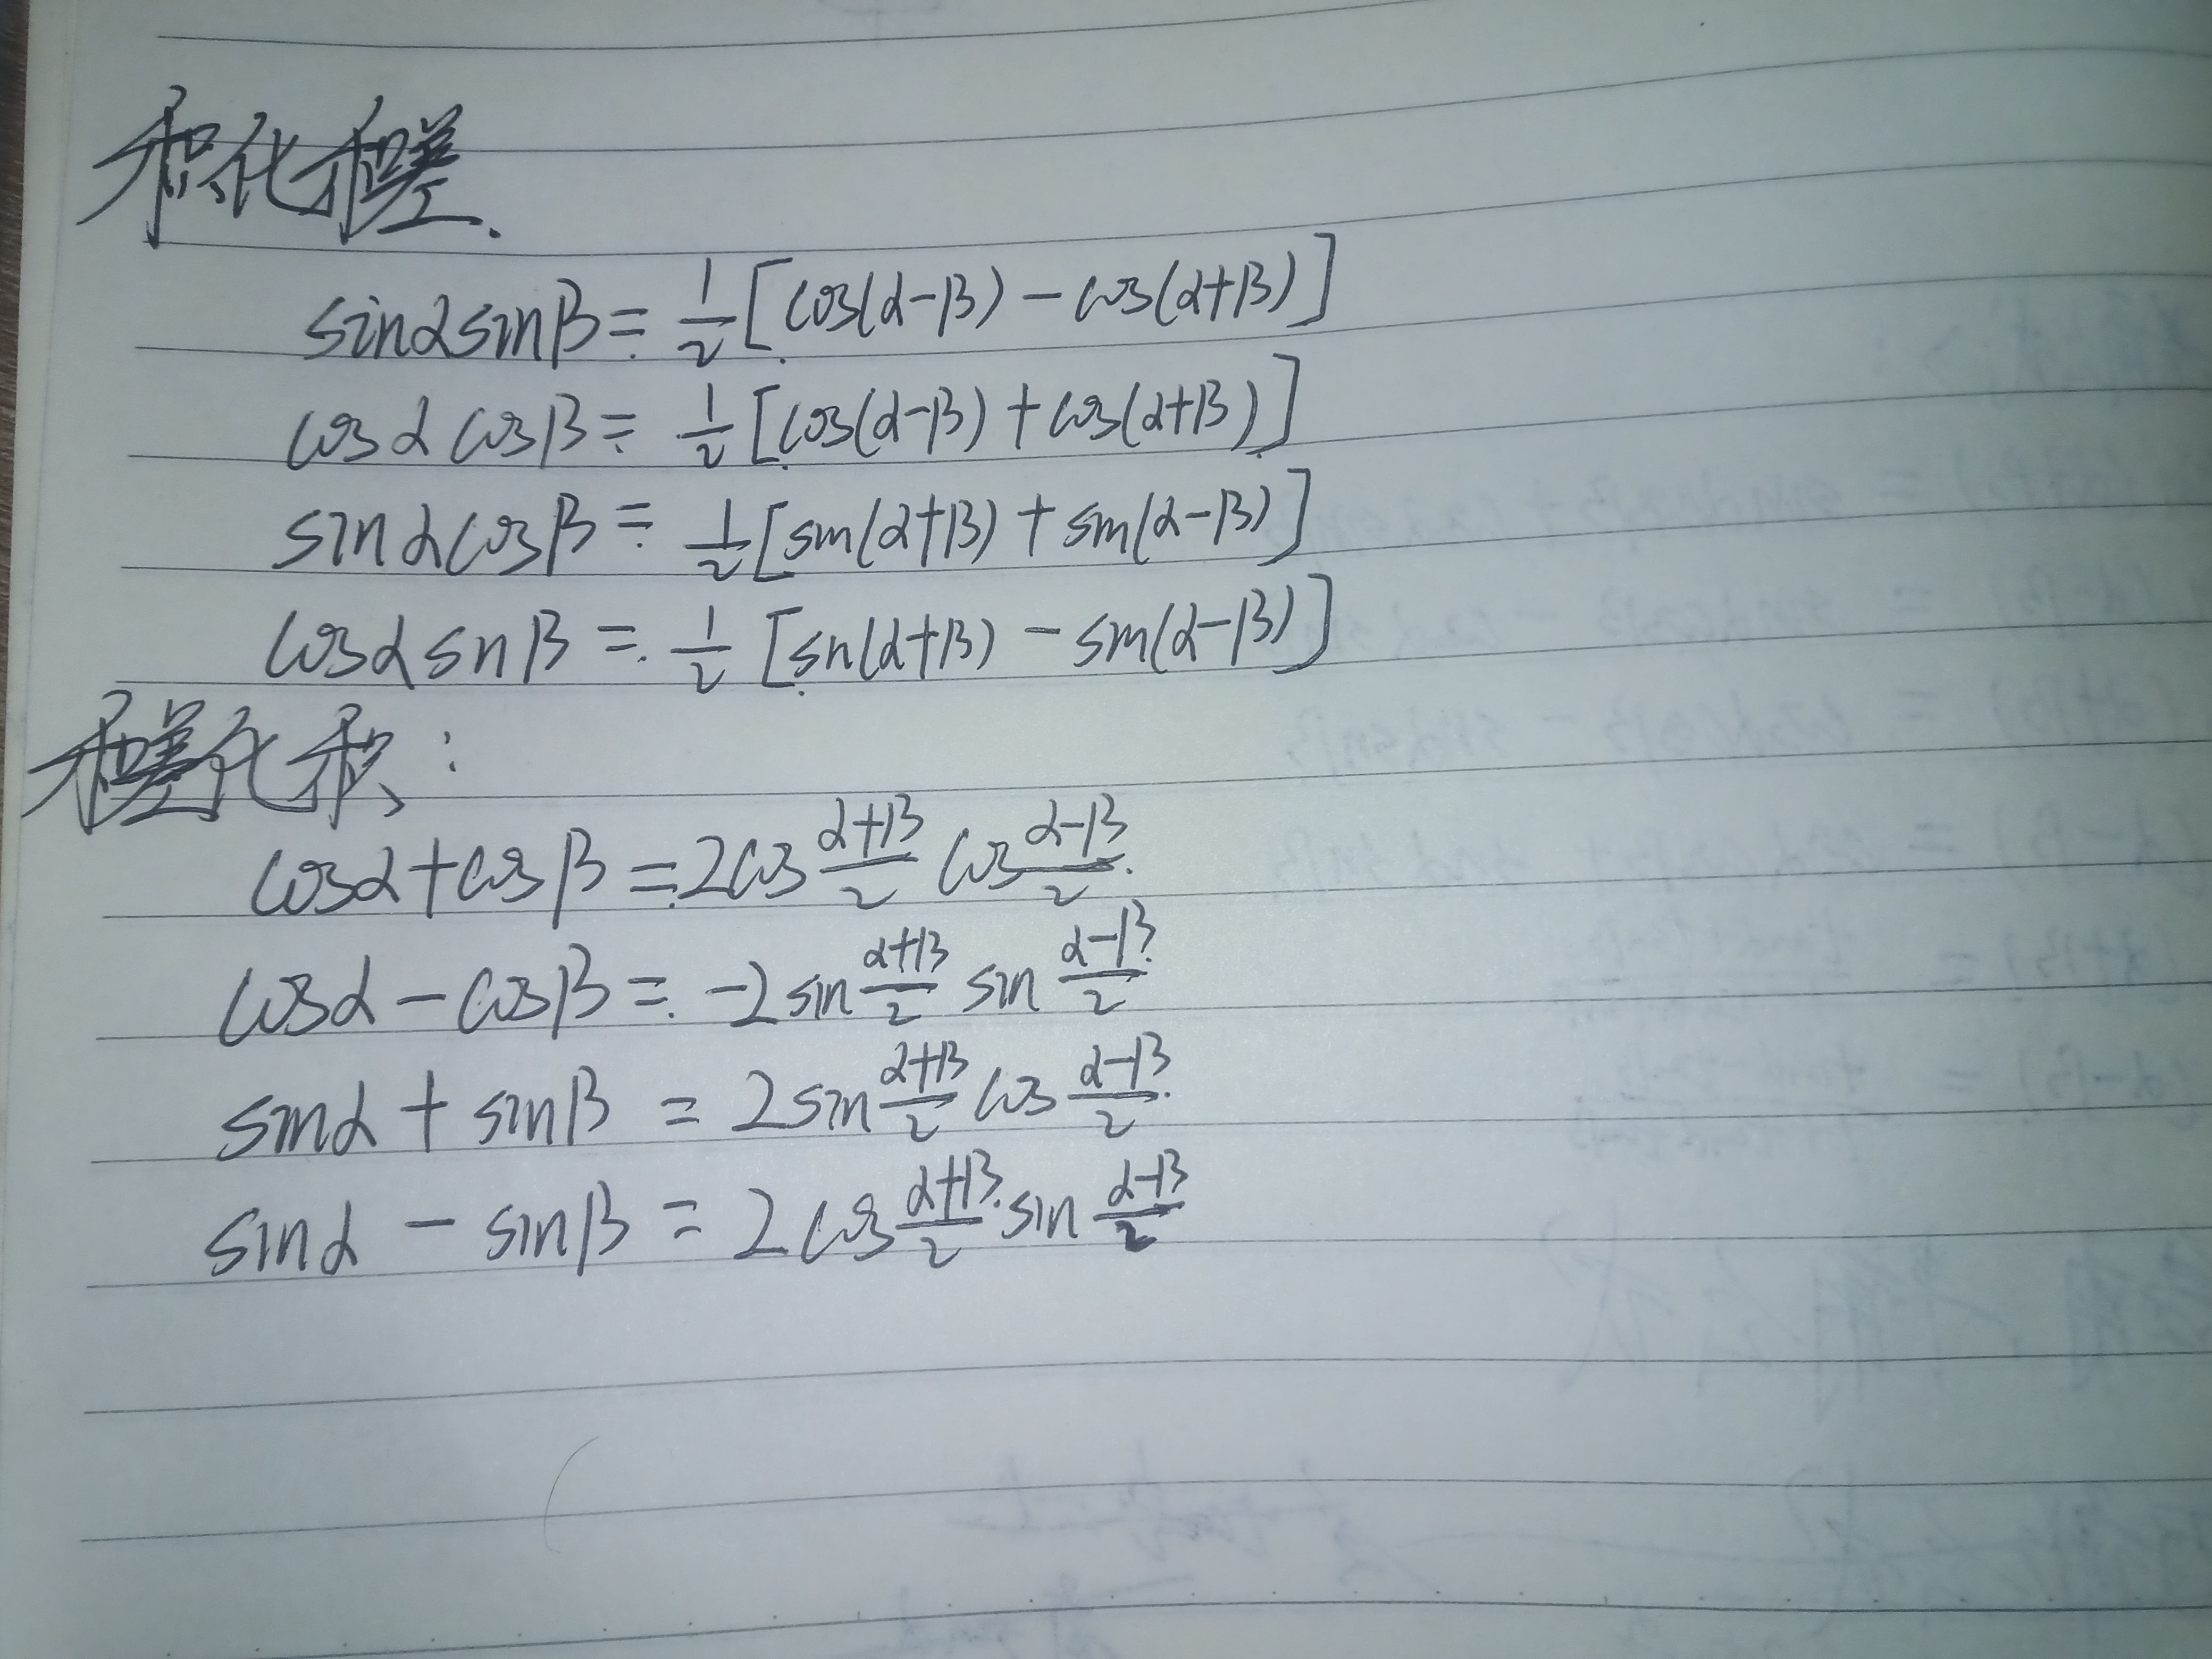 积化和差.
sinαsinβ = 1/2 [cos(α-β) - cos(α+β)]
cosα cosβ = 1/2 [cos(α-β) + cos(α+β)]
sinαcosβ = 1/2 [sin(α+β) + sin(α-β)]
cosα sinβ = 1/2 [sin(α+β) - sin(α-β)]
和差化积:
cosα + cosβ = 2cos (α+β)/2 cos (α-β)/2
cosα - cosβ = -2 sin (α+β)/2 sin (α-β)/2
sinα + sinβ = 2 sin (α+β)/2 cos (α-β)/2
sinα - sinβ = 2 cos (α+β)/2 sin (α-β)/2